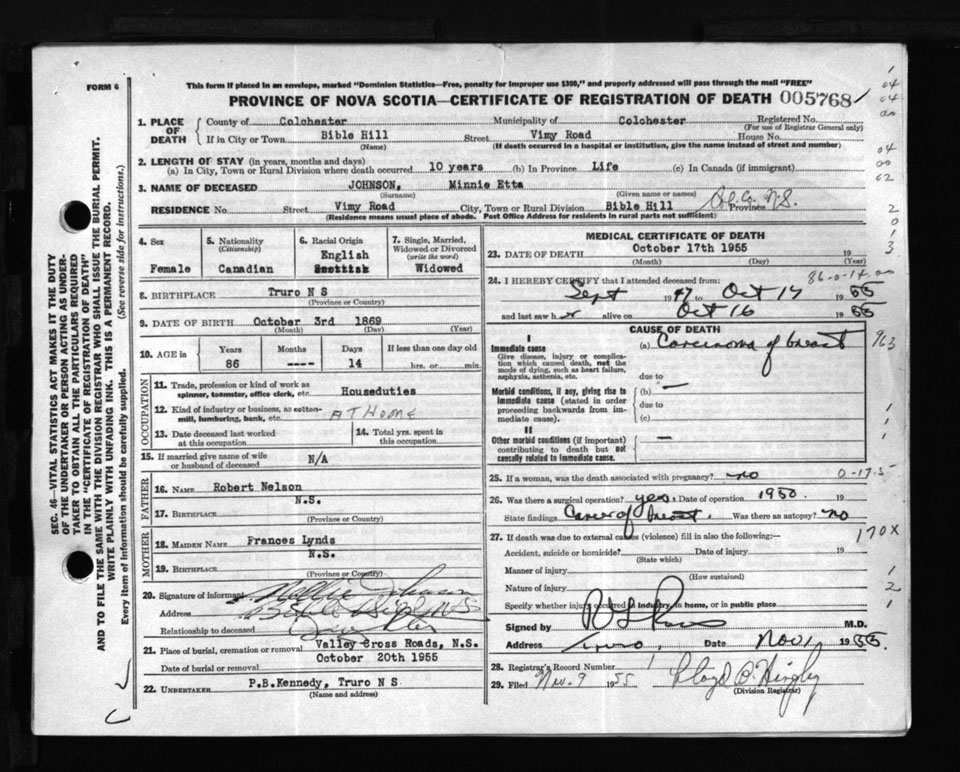 FORM 6
This form if placed in an envelope, marked "Dominion Statistics—Free, penalty for improper use $300," and properly addressed will pass through the mail "FREE"
PROVINCE OF NOVA SCOTIA—CERTIFICATE OF REGISTRATION OF DEATH 005768
1. PLACE OF DEATH
County of Colchester Municipality of Colchester Registered No.
(For use of Registrar General only)
If in City or Town Bible Hill Street Vimy Road House No.
(Name) (If death occurred in a hospital or institution, give the name instead of street and number)
2. LENGTH OF STAY (in years, months and days)
(a) In City, Town or Rural Division where death occurred 10 years (b) In Province Life (c) In Canada (if immigrant)
3. NAME OF DECEASED JOHNSON, Minnie Etta
(Surname) (Given name or names)
RESIDENCE No. Street Vimy Road City, Town or Rural Division Bible Hill Province Col. Co. N.S.
(Residence means usual place of abode. Post Office Address for residents in rural parts not sufficient)
4. Sex
Female
5. Nationality
(Citizenship)
Canadian
6. Racial Origin
English
Scottish
7. Single, Married, Widowed or Divorced
(write the word)
Widowed
8. BIRTHPLACE Truro N S
(Province or Country)
9. DATE OF BIRTH October 3rd 1869
(Month) (Day) (Year)
10. AGE in
Years Months Days If less than one day old
86 ---- 14 hrs. or min.
OCCUPATION
11. Trade, profession or kind of work as spinner, teamster, office clerk, etc. Houseduties
12. Kind of industry or business, as cotton-mill, lumbering, bank, etc. AT HOME
13. Date deceased last worked at this occupation
14. Total yrs. spent in this occupation
15. If married give name of wife or husband of deceased N/A
FATHER
16. NAME Robert Nelson
N.S.
17. BIRTHPLACE
(Province or Country)
MOTHER
18. MAIDEN NAME Frances Lynds
N.S.
19. BIRTHPLACE
(Province or Country)
20. Signature of informant Johnson
Address
Relationship to deceased
21. Place of burial, cremation or removal Valley Cross Roads, N.S.
October 20th 1955
Date of burial or removal
22. UNDERTAKER P.B.Kennedy, Truro N S
(Name and address)
MEDICAL CERTIFICATE OF DEATH
October 17th 1955
23. DATE OF DEATH 19
(Month) (Day)
86-0-14
24. I HEREBY CERTIFY that I attended deceased from:
Sept 1947 to Oct 17 1955
and last saw h er alive on Oct 16 1955
CAUSE OF DEATH
I
Immediate cause (a) Carcinoma of breast
Give disease, injury or complication which caused death, not the mode of dying, such as heart failure, asphyxia, asthenia, etc.
due to
Morbid conditions, if any, giving rise to immediate cause (stated in order proceeding backwards from immediate cause). (b) —
due to
(c)
II
Other morbid conditions (if important) contributing to death but not causally related to immediate cause. —
25. If a woman, was the death associated with pregnancy? no
0-17-5
26. Was there a surgical operation? yes. Date of operation 1950 19
State findings Cancer of breast. Was there an autopsy? no
27. If death was due to external causes (violence) fill in also the following:— 170X
Accident, suicide or homicide? Date of injury 19
(State which)
Manner of injury
(How sustained)
Nature of injury
Specify whether injury occurred in industry, in home, or in public place
Signed by M.D.
Address Truro, Date Nov 1, 1955
28. Registrar's Record Number 1
29. Filed Nov. 9 1955 Lloyd B. Hingley
(Division Registrar)
SEC. 46—VITAL STATISTICS ACT MAKES IT THE DUTY OF THE UNDERTAKER OR PERSON ACTING AS UNDERTAKER TO OBTAIN ALL THE PARTICULARS REQUIRED IN THE "CERTIFICATE OF REGISTRATION OF DEATH" AND TO FILE THE SAME WITH THE DIVISION REGISTRAR WHO SHALL ISSUE THE BURIAL PERMIT.
WRITE PLAINLY WITH UNFADING INK. THIS IS A PERMANENT RECORD.
Every item of information should be carefully supplied. (See reverse side for instructions.)